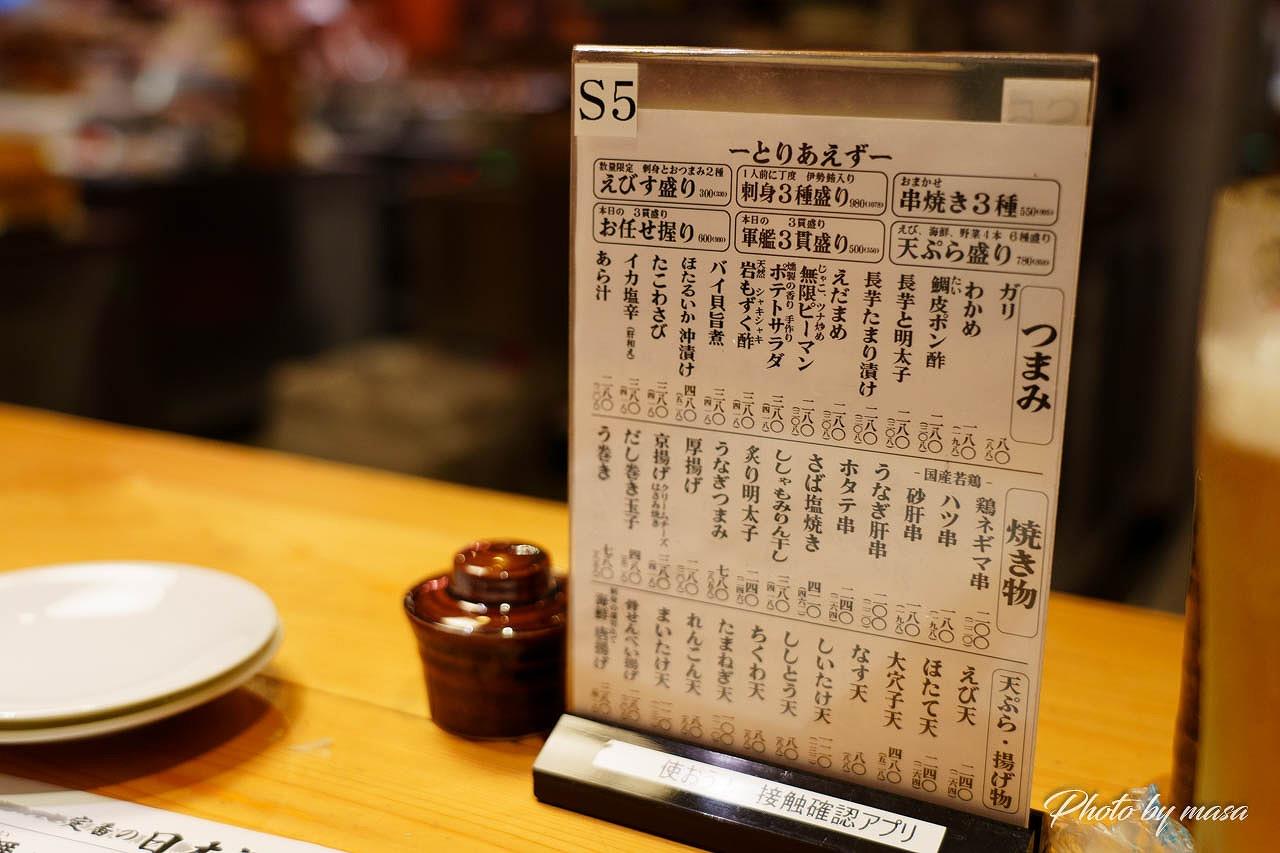 S5
ーとりあえずー
数量限定 刺身とおつまみ2種
えびす盛り 300(330)
1人前に丁度 伊勢鮪入り
刺身3種盛り 980(1078)
おまかせ
串焼き3種 550(605)
本日の 3貫盛り
お任せ握り 600(660)
本日の 3貫盛り
軍艦3貫盛り 500(550)
えび、海鮮、野菜4本 6種盛り
天ぷら盛り 780(858)
つまみ
ガリ 八〇
わかめ 一八〇
鯛皮ポン酢 二八〇
たい
長芋と明太子 二八〇
長芋たまり漬け 二八〇
えだまめ 二八〇
じゃこ、ツナ炒め
無限ピーマン 二八〇
燻製の香り 手作り
ポテトサラダ 三八〇
天然 シャキシャキ
岩もずく酢 三八〇
バイ貝旨煮 三八〇
ほたるいか沖漬け 四八〇
たこわさび 三八〇
イカ塩辛 三八〇
あら汁 二八〇
焼き物
-国産若鶏-
鶏ネギマ串 二〇〇
ハツ串 一八〇
砂肝串 一八〇
うなぎ肝串 二〇〇
ホタテ串 二四〇
さば塩焼き 四二〇
ししゃもみりん干し 三八〇
炙り明太子 二四〇
うなぎつまみ 七八〇
厚揚げ 二八〇
京揚げ クリームチーズはさみ焼き 三八〇
だし巻き玉子 四八〇
う巻き 七八〇
天ぷら・揚げ物
えび天 二四〇
ほたて天 二四〇
大穴子天 四八〇
なす天 八〇
しいたけ天 一二〇
ししとう天 八〇
ちくわ天 八〇
たまねぎ天
れんこん天
まいたけ天
骨せんべい揚げ
海鮮 唐揚げ
使お
接触確認アプリ
定番の日本
Photo by masa